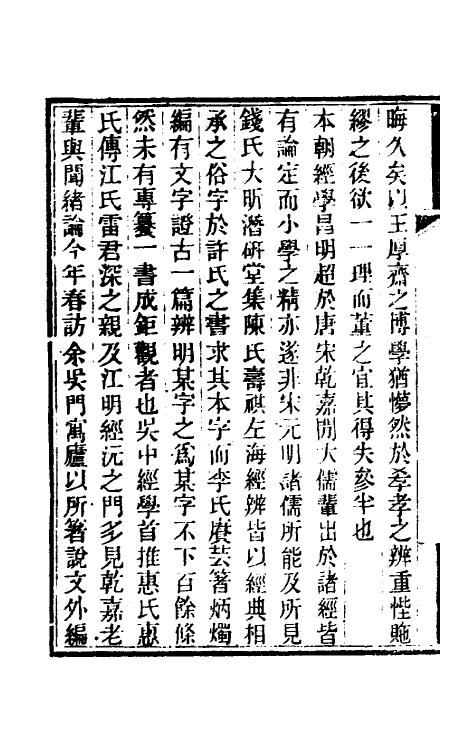 晦久矣以王厚齋之博學猶懜然於㸚孝之辨重悂貤
繆之後欲一一理而董之宜其得失參半也
本朝經學昌明超於唐宋乾嘉閒大儒輩出於諸經皆
有論定而小學之精亦遂非宋元明諸儒所能及所見
錢氏大昕潛硏堂集陳氏壽祺左海經辨皆以經典相
承之俗字於許氏之書求其本字而李氏賡芸箸炳燭
編有文字證古一篇辨明某字之爲某字不下百餘條
然未有專纂一書成鉅觀者也吳中經學首推惠氏惠
氏傳江氏雷君深之親及江明經沅之門多見乾嘉老
輩與聞緒論今年春訪余吳門寓廬以所箸說文外編